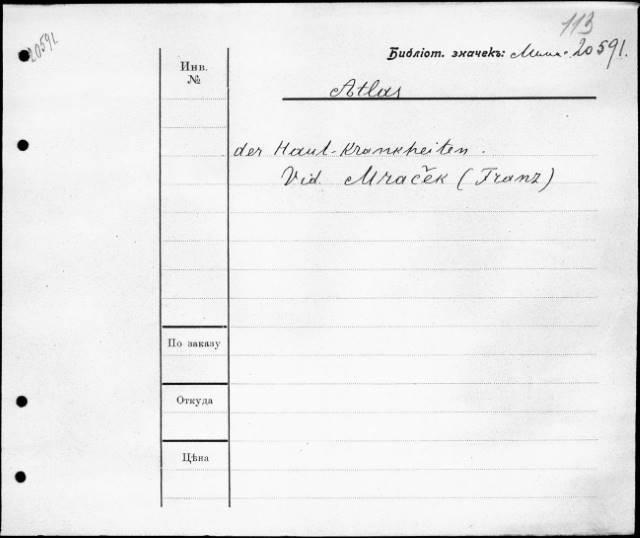 113
20591
Библіот. значекъ: 20591.
Инв.
№
Atlas
der Haut-Krankheiten.
Vid. Mraček (Franz)
По заказу
Откуда
Цѣна